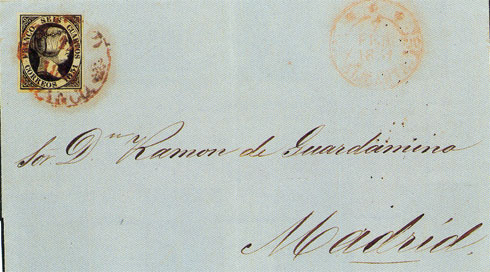 FRANCO. SEIS CUARTOS
CORREOS
Sor Dn Ramon de Guardamino
Madrid.